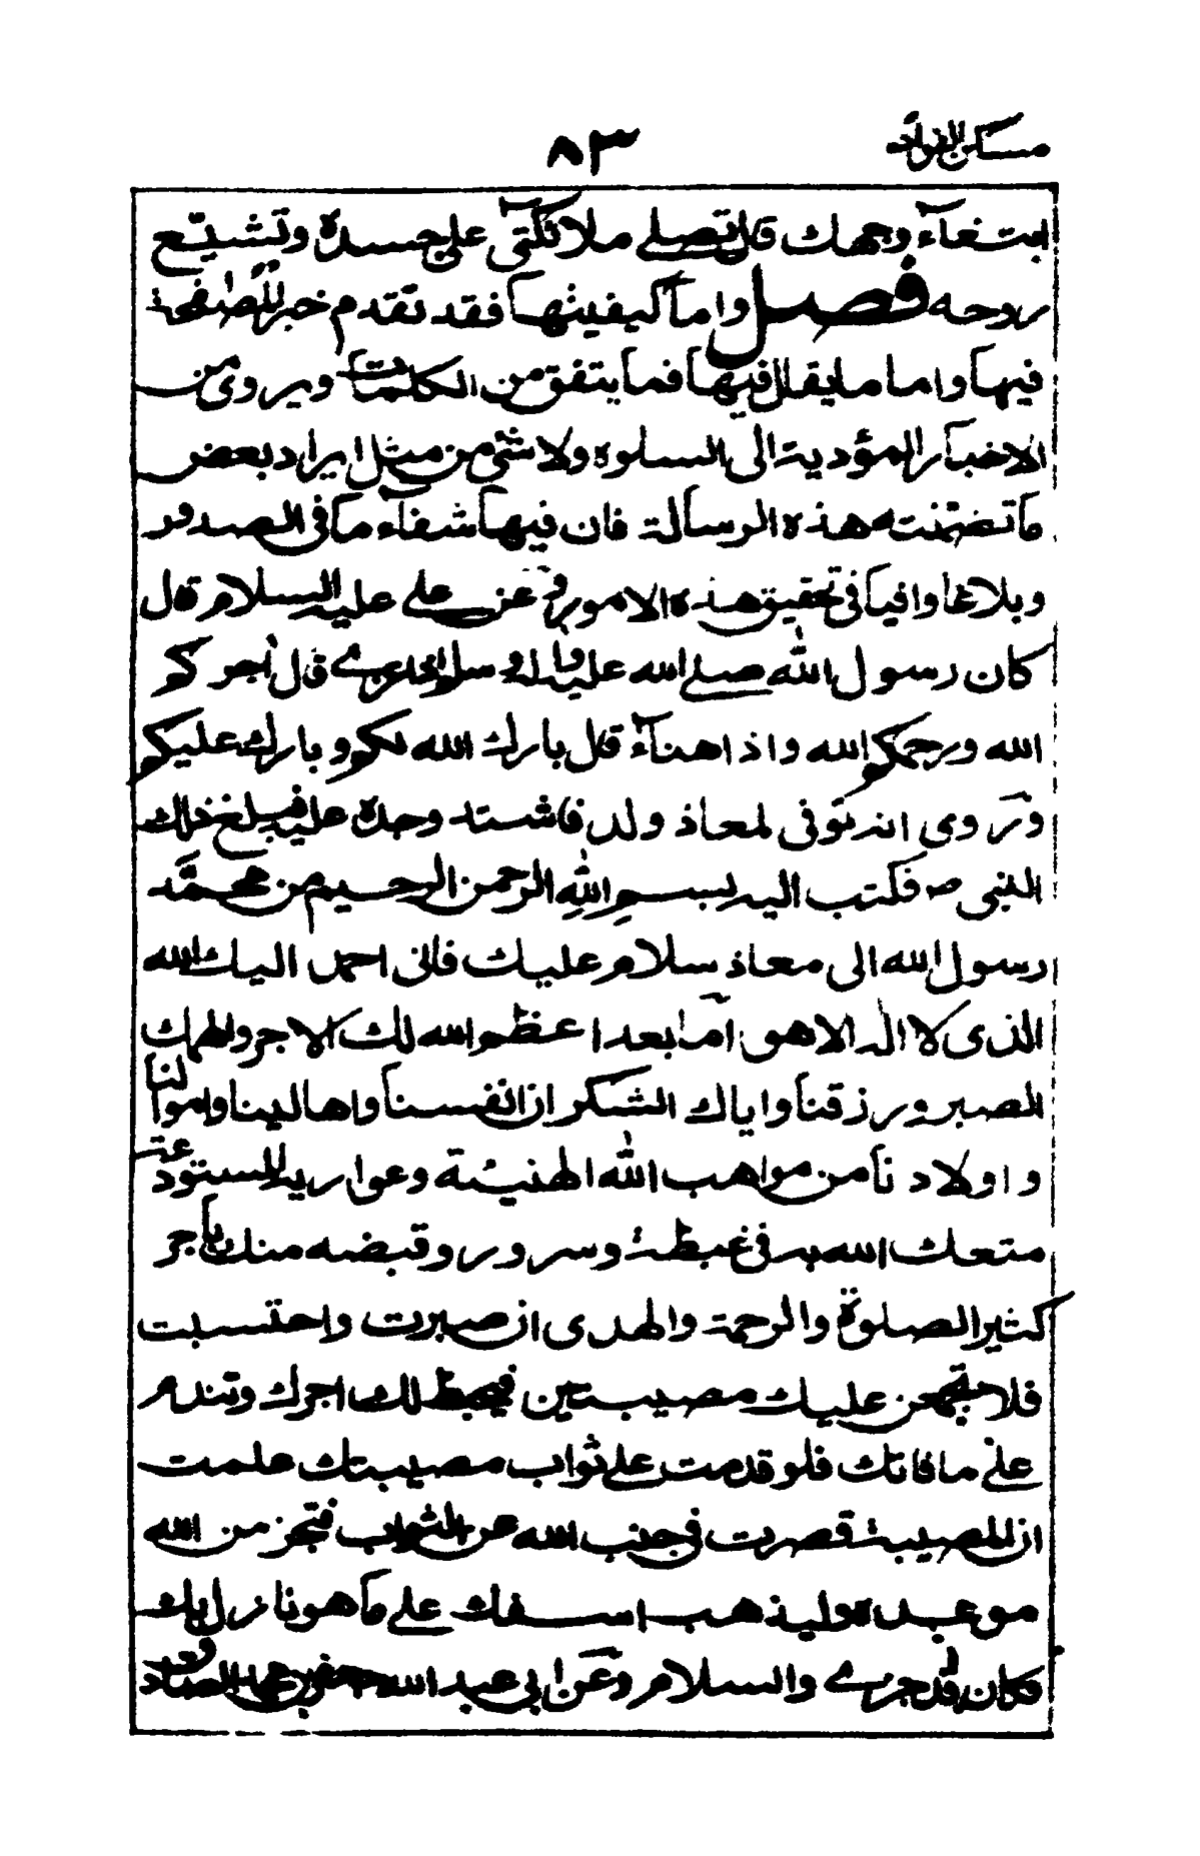 مسكن الفؤاد
٨٣
ابتغاء وجهك قال تصلي ملائكتي على جسده وتشيّع
روحه فصل واما كيفيتها فقد تقدم خبر المصافحة
فيها واما ما يقال فيها فما يتفق من الكلمات ويروى من
الاخبار المؤدية الى السلوة ولا شئ من مثل ايراد بعض
ما تضمنته هذه الرسالة فان فيها شفاء ما في الصدور
وبلاغا وافيا في تحقيق هذه الامور وعن علي عليه السلام قال
كان رسول الله صلى الله عليه واله وسلم اذا عزى قال اجركم
الله ورحمكم الله واذا هنأ قال بارك الله لكم وبارك عليكم
وروى انه توفى لمعاذ ولد فاشتد وجده عليه فبلغ ذلك
النبي ص فكتب اليه بسم الله الرحمن الرحيم من محمّد
رسول الله الى معاذ سلام عليك فاني احمد اليك الله
الذى لا اله الا هو اما بعد اعظم الله لك الاجر والهمك
الصبر ورزقنا واياك الشكر ان انفسنا واهالينا واموالنا
واولادنا من مواهب الله الهنيئة وعواريه المستودعة
متعك الله به في غبطة وسرور وقبضه منك باجر
كثير الصلوة والرحمة والهدى ان صبرت واحتسبت
فلا تجمعن عليك مصيبتين فيحبط لك اجرك وتندم
على ما فاتك فلو قدمت على ثواب مصيبتك علمت
ان المصيبة قصرت في جنب الله عن الثواب فتنجز من الله
موعده وليذهب اسفك على ما هو نازل بك
فكان قد جرى والسلام وعن ابي عبد الله جعفر بن محمد الصادق